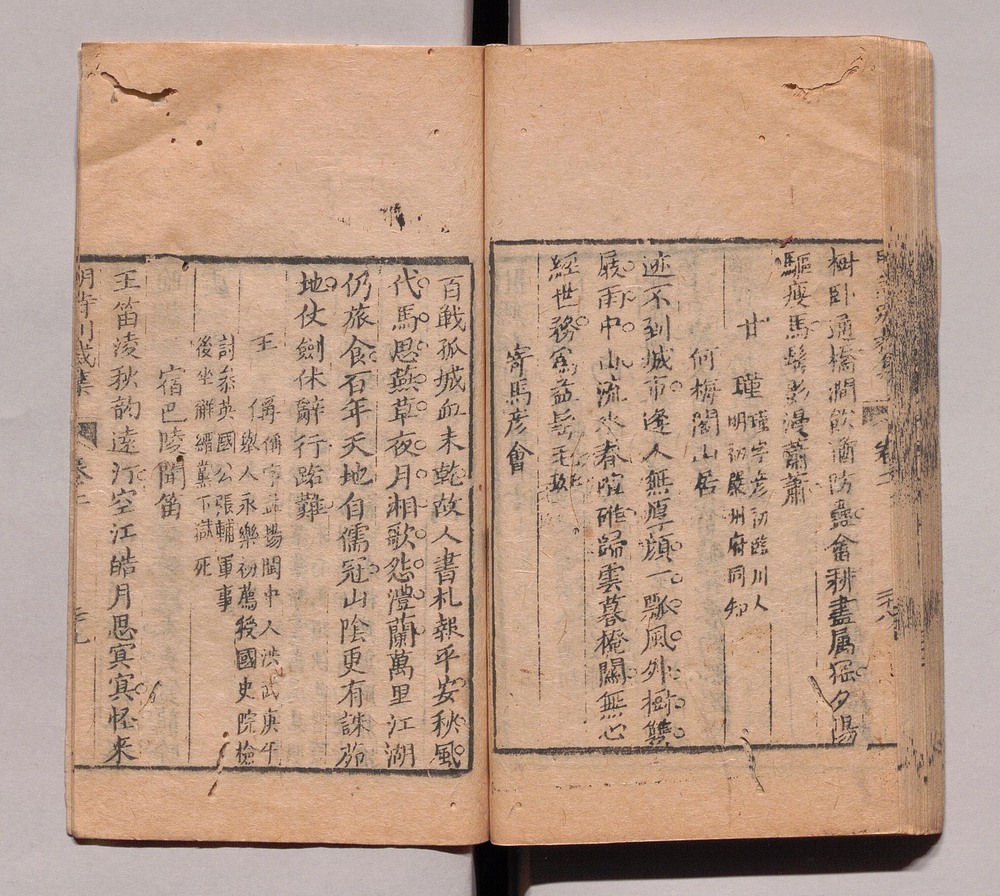 樹臥通橋澗飲酒防蠡畬耕盡属猺夕陽
驅瘦馬髩影漫蕭蕭
甘瑾
瑾字彦初臨川人
明初嚴州府同知
何梅閣山居
迹不到城市逢人無厚顔一瓢風外樹雙
屐雨中山流水春喧碓歸雲暮掩關無心
經世務寫益岳
寄馬彦會
百戰孤城血未乾故人書札報平安秋風
代馬思燕草夜月湘歌怨澧蘭萬里江湖
仍旅食百年天地自儒冠山陰更有誅茆
地仗劍休辭行路難
王偁
偁字孟揚閩中人洪武庚午
舉人永樂初薦授國史院檢
討叅英國公張輔軍事
後坐解縉黨下獄死
宿巴陵聞笛
玉笛凌秋韵遠汀空江皓月思冥冥怪来
明詩别裁集
卷二